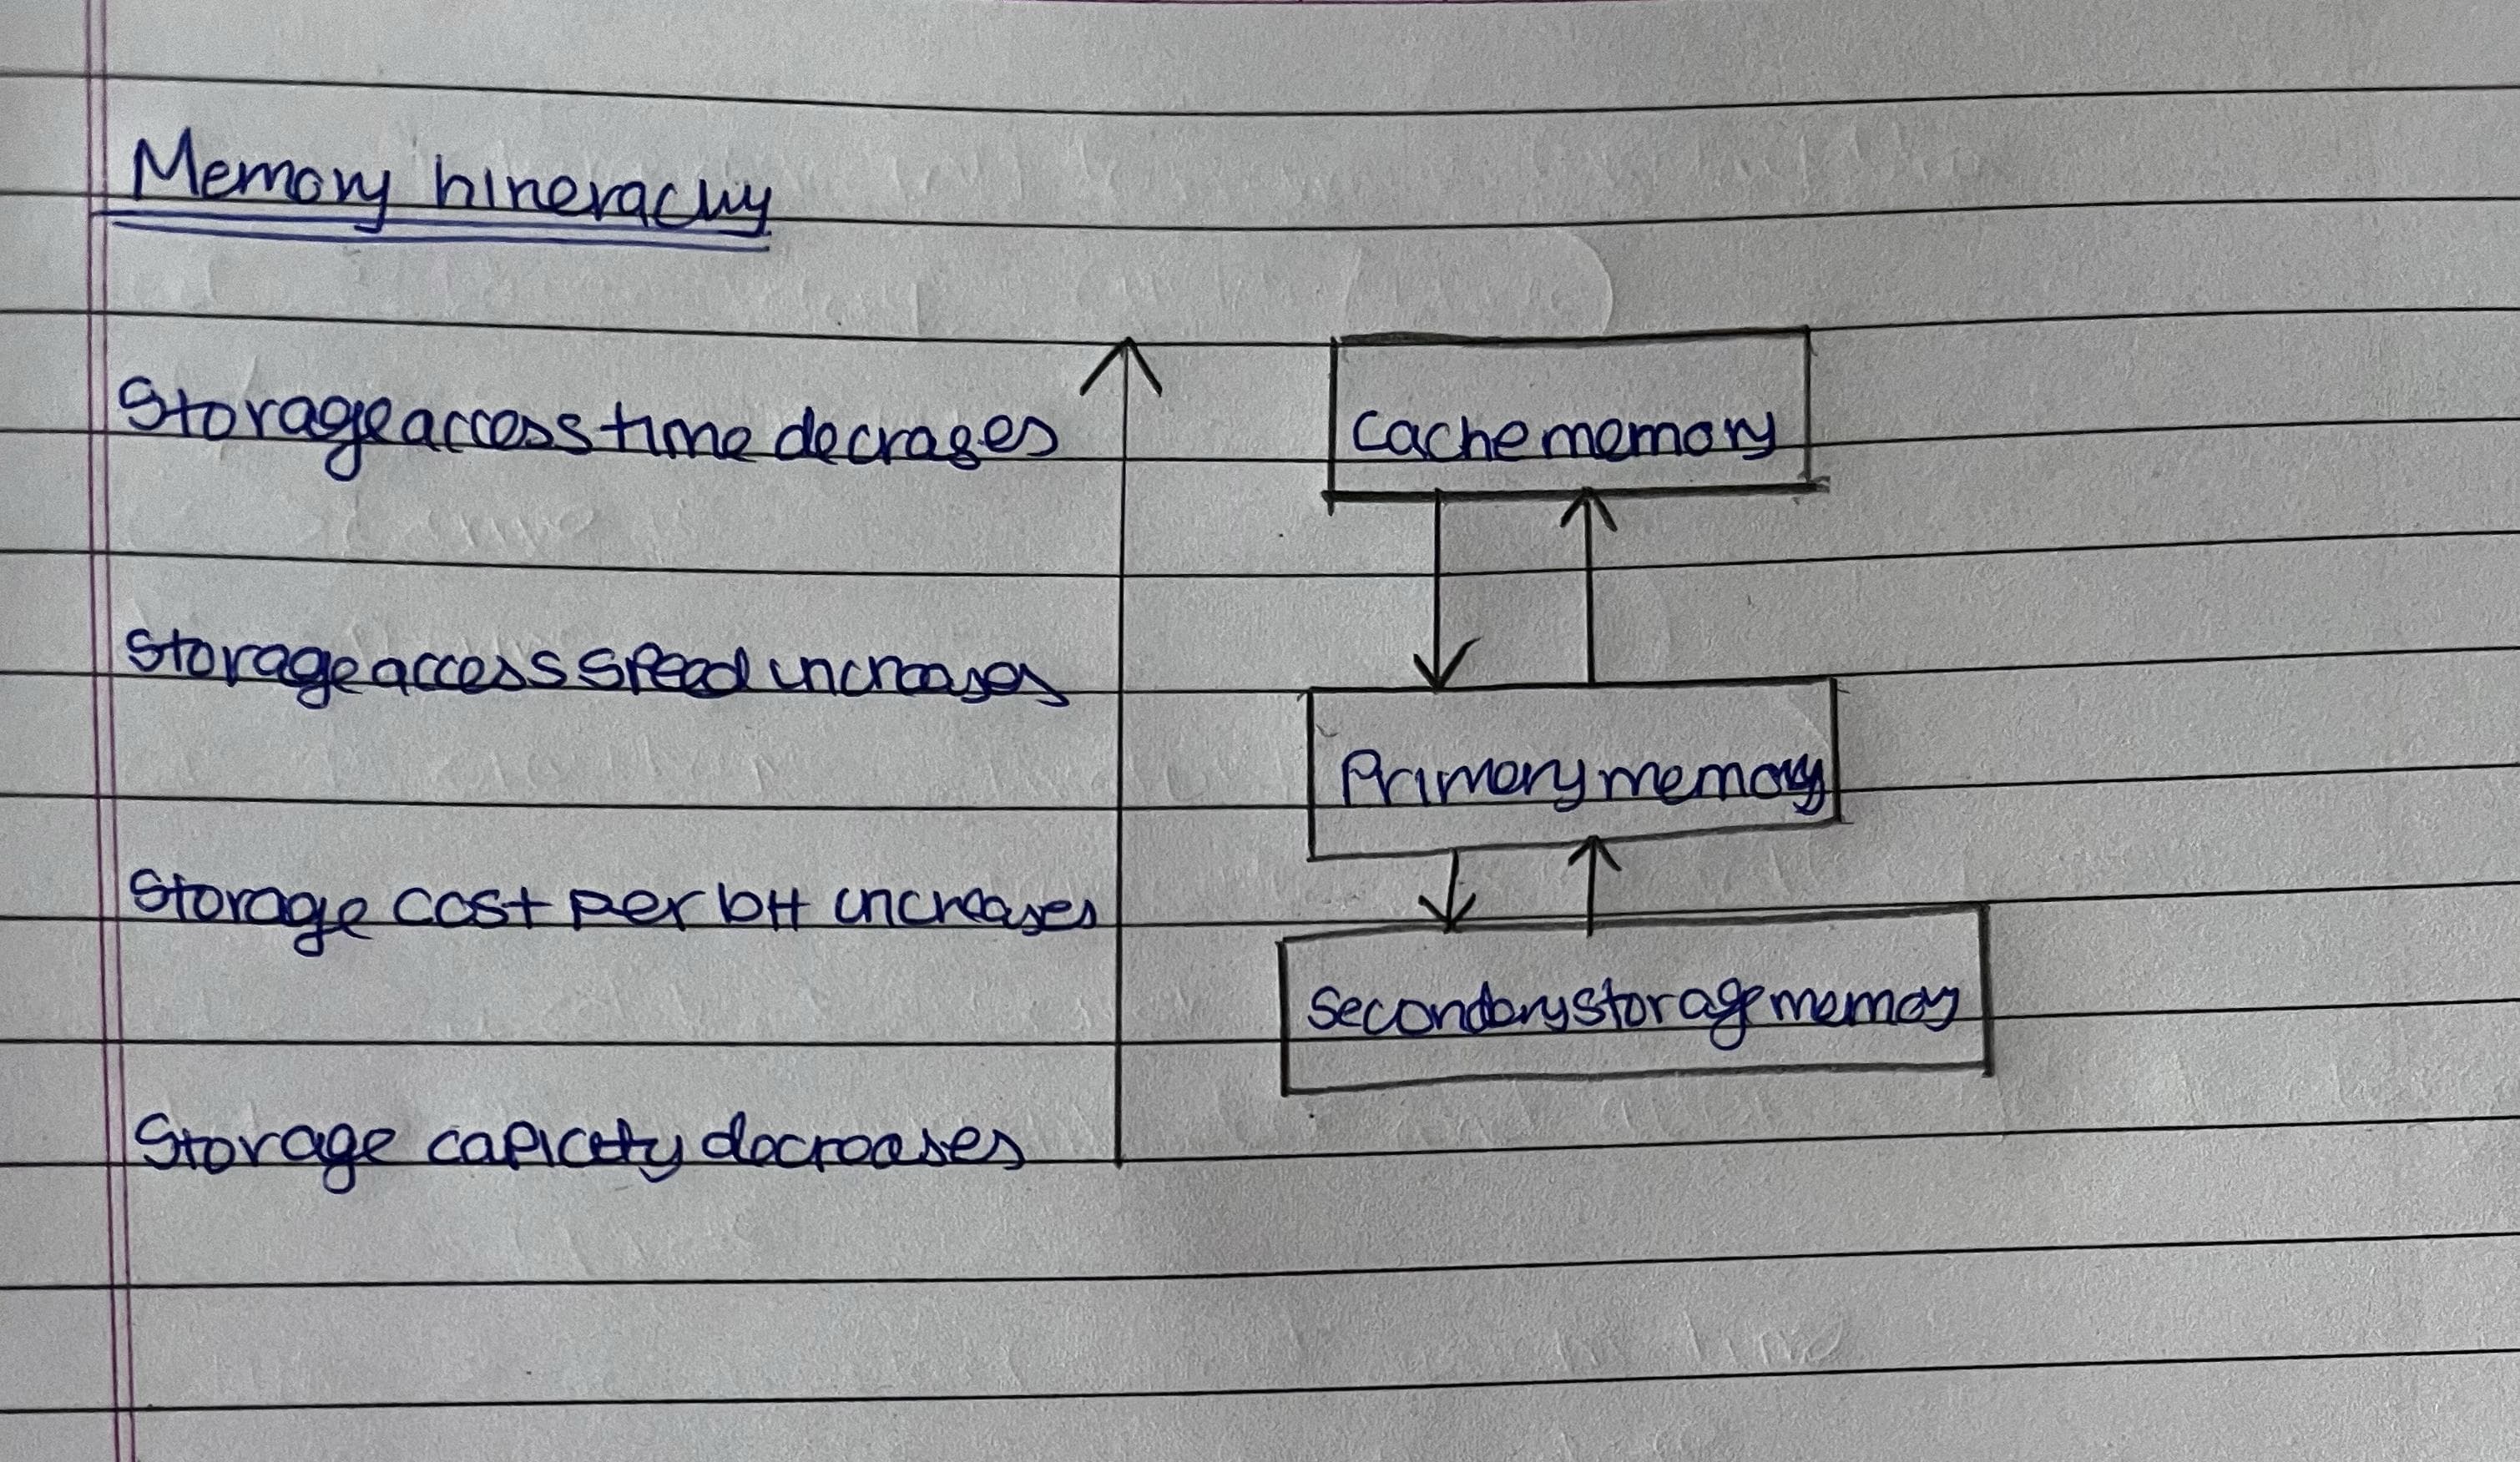 Memory hinerachy
Storage access time decrages
Cache memory
Storage access speed increases
Primary memory
Storage cost per bit increases
Secondary storage memory
Storage capicity decreases